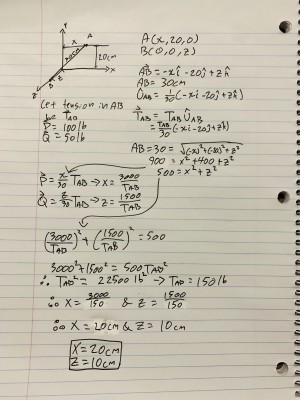 Y
A
x
20cm
30cm
x
B
z
Z
A(x,20,0)
B(0,0,z)
AB = -xi - 20j + zk
AB = 30cm
UAB = 1/30(-xi - 20j + zk)
Let tension in AB
be TAB
P = 100lb
Q = 50lb
TAB = TAB UAB
= TAB/30 (-xi - 20j + zk)
AB = 30 = √(-x)²+(-20)²+z²
900 = x² + 400 + z²
500 = x² + z²
P = x/30 TAB → x = 3000/TAB
Q = z/30 TAB → z = 1500/TAB
(3000/TAB)² + (1500/TAB)² = 500
3000² + 1500² = 500 TAB²
∴ TAB² = 22500 lb² → TAB = 150 lb
∴ x = 3000/150 & z = 1500/150
∴ x = 20cm & z = 10cm
x = 20cm
z = 10cm